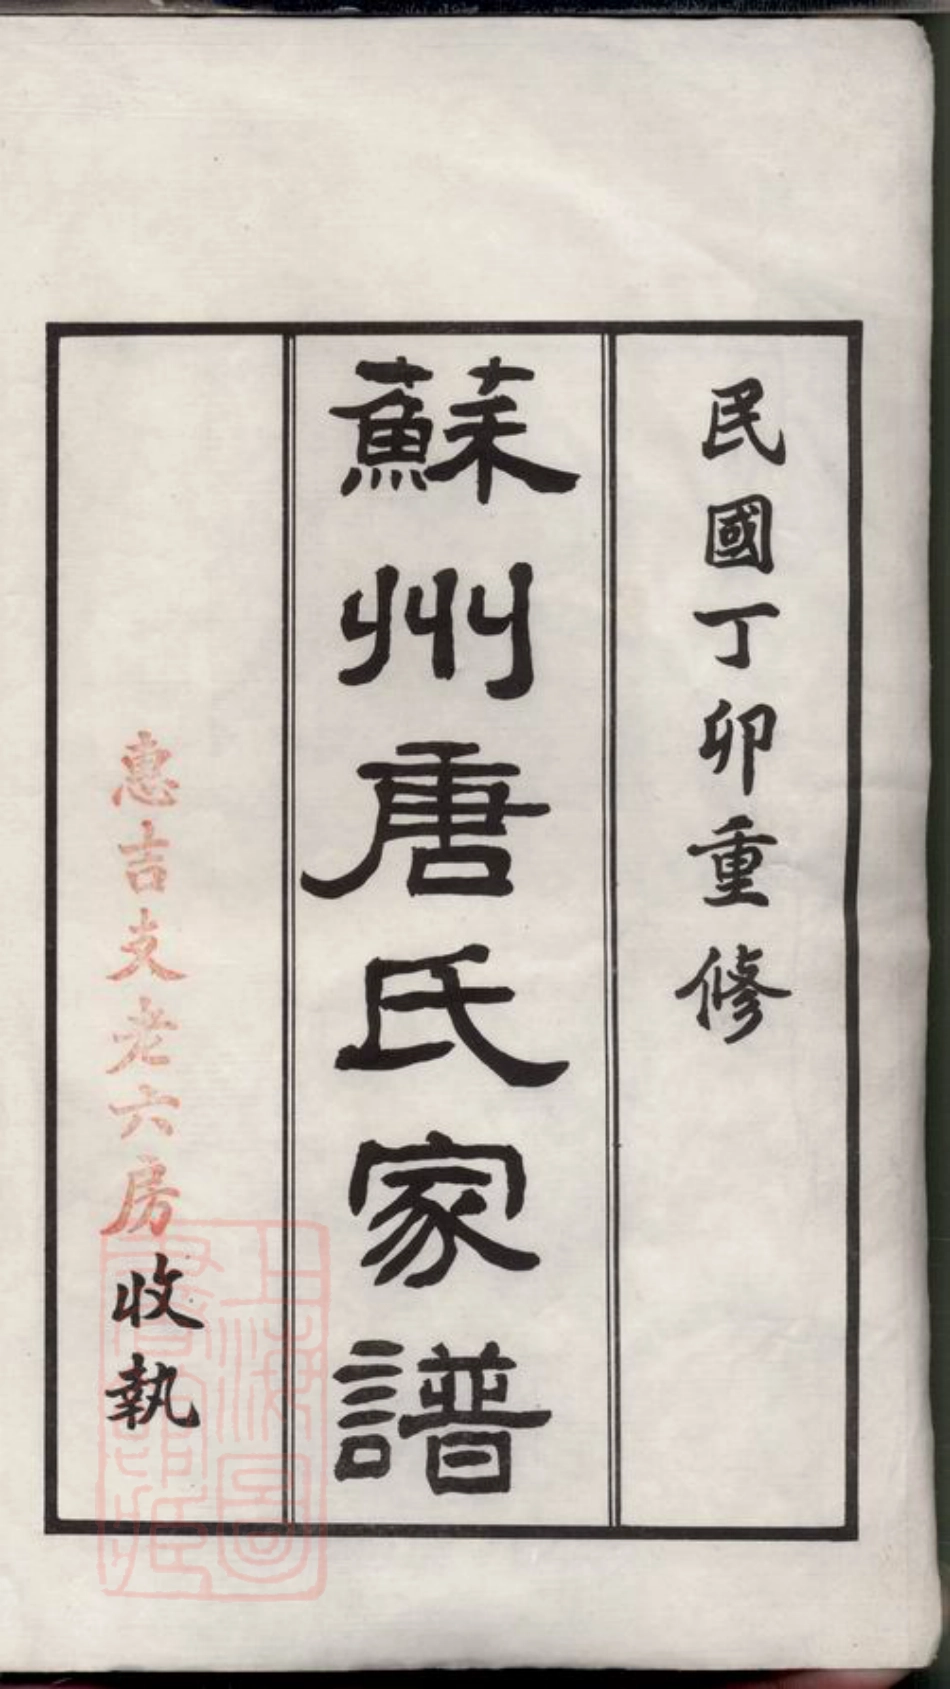 民國丁卯重修
蘇州唐氏家譜
惠吉支老六房收執
上海圖
書館藏